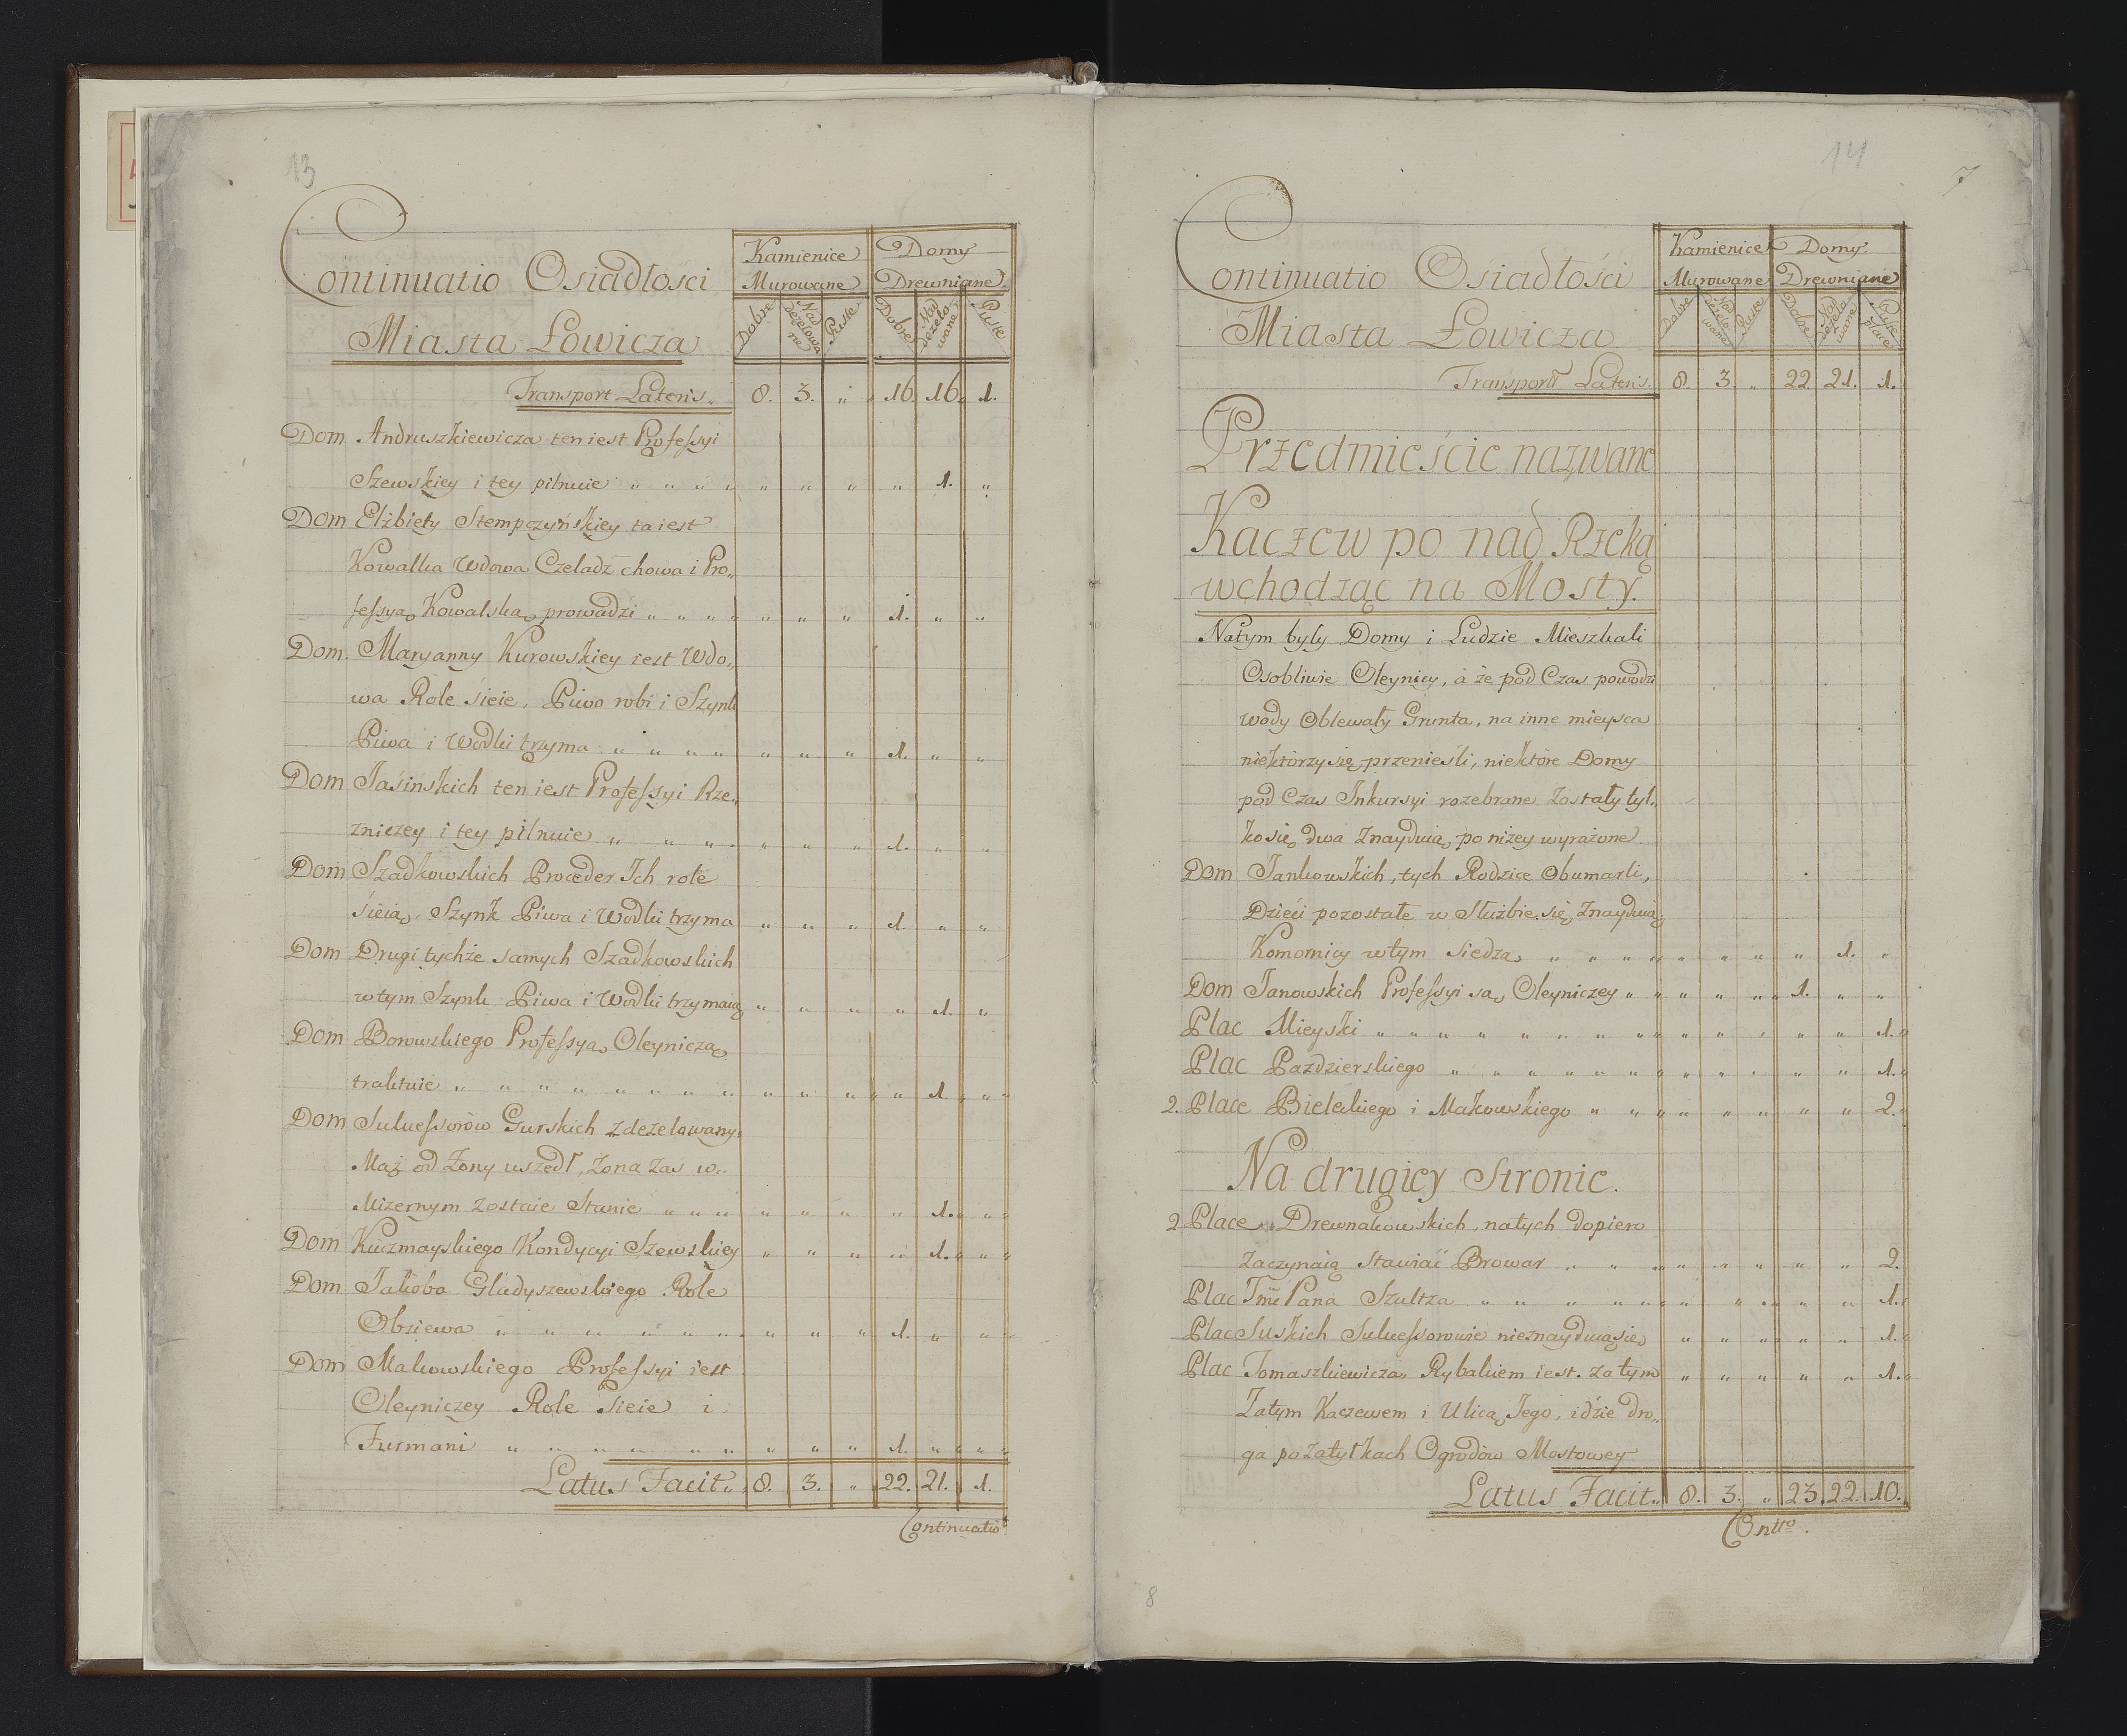 13
Continuatio Osiadłości
Miasta Łowicza
Kamienice Murowane
Domy Drewniane
Dobre
Nad dezelowane
Puste
Dobre
Nad dezelowane
Puste
Transport Lateris. 8. 3. " 16. 16. 1.
Dom Andruszkiewicza ten iest Professyi
Szewskiey i tey pilnuie " " " " " " " " 1. "
Dom Elżbiety Stempczyńskiey ta iest
Kowalka Wdowa Czeladź chowa i Pro„
fessyą Kowalską prowadzi " " " " " " " 1. " "
Dom. Maryanny Kurowskiey iest Wdo„
wa Role sieie, Piwo robi i Szynk
Piwa i Wodki trzyma " " " " " " " 1. " "
Dom Jasińskich ten iest Professyi Rze„
zniczey i tey pilnuie " " " " " " " 1. " "
Dom Szadkowskich Proceder Ich role
sieią, Szynk Piwa i Wodki trzyma " " " 1. " "
Dom Drugi tychże samych Szadkowskich
w tym Szynk Piwa i Wodki trzymaią " " " " 1. "
Dom Borowskiego Professyą Oleyniczą
traktuie " " " " " " " " " " " " 1. " "
Dom Sukcessorów Gurskich zdezelowany.
Mąż od Żony uszedł, Żona zaś w„
Mizernym zostaie Stanie " " " " " " " 1. " "
Dom Kuczmayskiego Kondycyi Szewskiey " " " " 1. " "
Dom Jakóba Gładyszewskiego Role
Obsiewa " " " " " " " " " " 1. " "
Dom Makowskiego Professyi iest
Oleyniczey Role Sieie i
Furmani " " " " " " " " " " 1. " " "
Latus Facit. 8. 3. " 22. 21. 1.
Continuatio
14
7
Continuatio Osiadłości
Miasta Łowicza
Kamienice Murowane
Domy Drewniane
Dobre
Nad dezelowane
Puste
Dobre
Nad dezelowane
Puste place
Transport Lateris. 8. 3. " 22. 21. 1.
Przedmieście nazwane
Kaczew po nad Rzeką
wchodząc na Mosty.
Na tym były Domy i Ludzie Mieszkali
Osobliwie Oleynicy, á że pod Czas powodzi
wody Oblewały Grunta, na inne mieysca
niektórzy się przenieśli, niektóre Domy
pod Czas Inkursyi rozebrane zostały tyl„
ko się dwa znayduią po niżey wyrażone.
Dom Jankowskich, tych Rodzice Obumarli,
Dzieci pozostałe w Służbie się znayduią
Komornicy w tym siedzą " " " " " " " " 1. "
Dom Janowskich Professyi są Oleyniczey " " " " " 1. " "
Plac Mieyski " " " " " " " " " " " " " 1.
Plac Pazdzierskiego " " " " " " " " " " " 1.
2. Place Bieleckiego i Makowskiego " " " " " " " " 2.
Na drugiey Stronie.
2 Place Drewnakowskich, na tych dopiero
Zaczynaią Stawiać Browar " " " " " " " " 2.
Plac Jmć Pana Szultza " " " " " " " " " " 1.
Plac Suskich Sukcessorowie nieznayduią się " " " " " 1.
Plac Tomaszkiewicza, Rybakiem iest. za tym " " " " " 1.
Zatym Kaczewem i Ulicą Jego, idzie dro„
ga po zatyłkach Ogrodów Mostowey
Latus Facit. 8. 3. " 23. 22. 10.
Conttio.
8